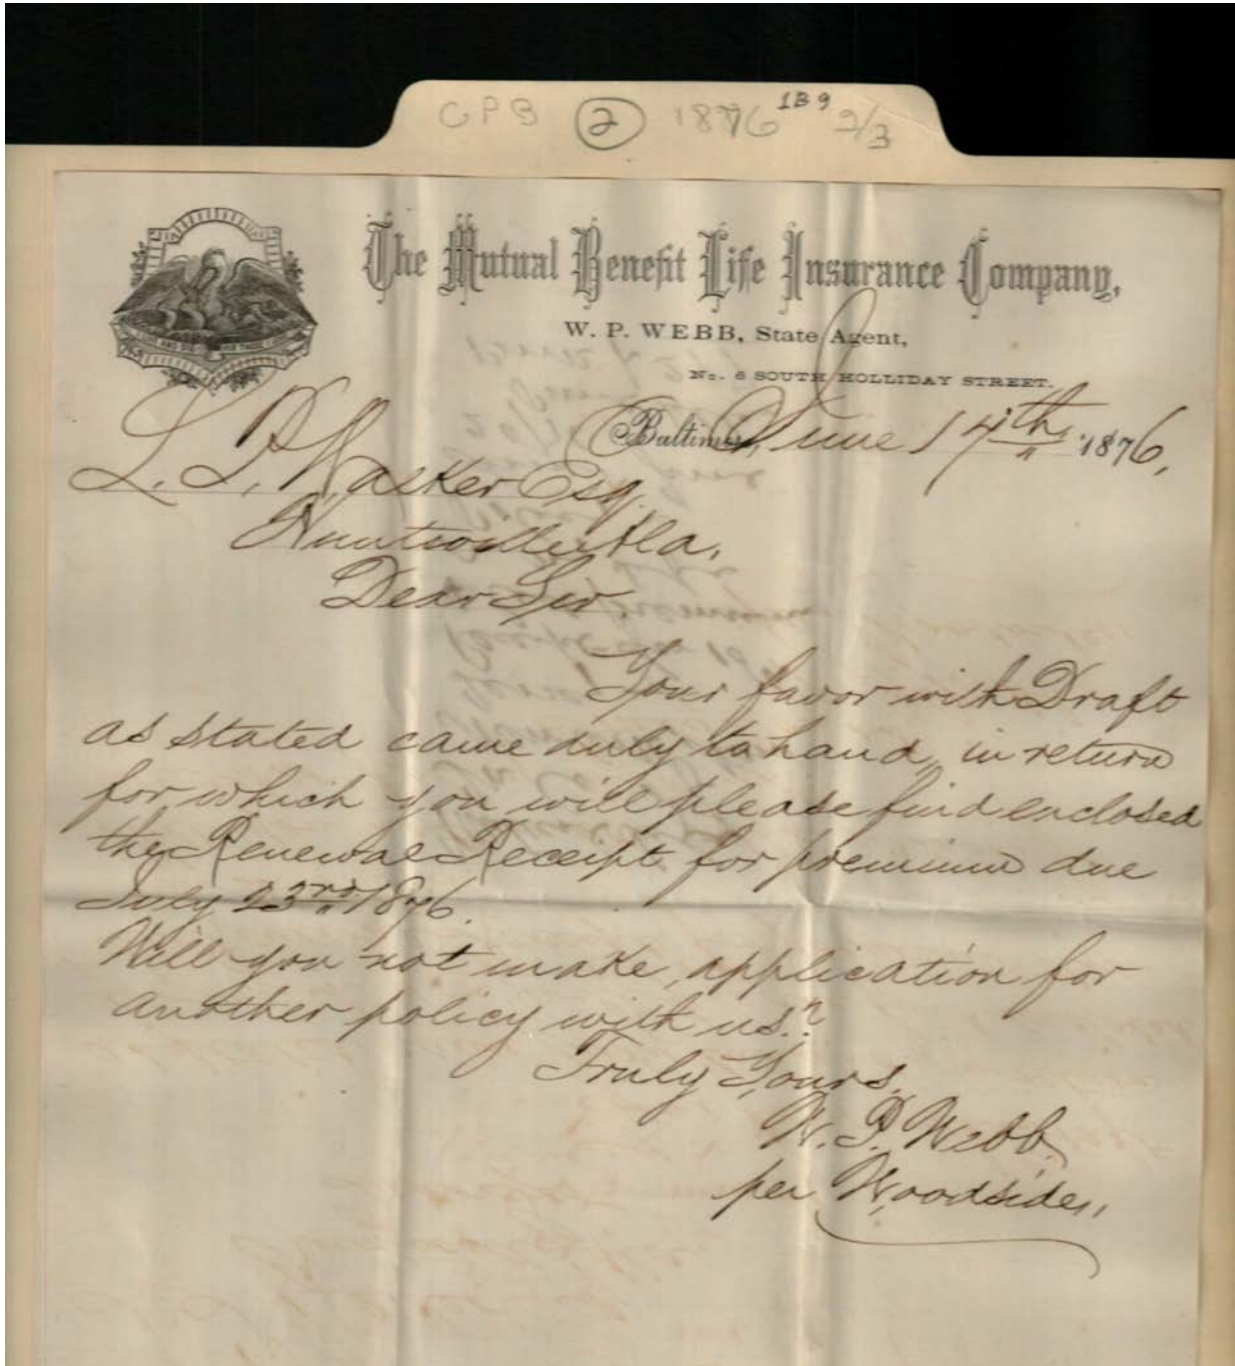 CPB 2 1876 1B9 2/3
The Mutual Benefit Life Insurance Company,
W. P. WEBB, State Agent,
No. 6 SOUTH HOLLIDAY STREET.
Baltimore, June 14th 1876,
L. P. Walker Esq.
Huntsville Ala.
Dear Sir
Your favor with Draft
as stated came duly to hand, in return
for which you will please find enclosed
the Renewal Receipt for premium due
July 23rd 1876.
Will you not make application for
another policy with us?
Truly Yours,
W. P. Webb
per Woodside,